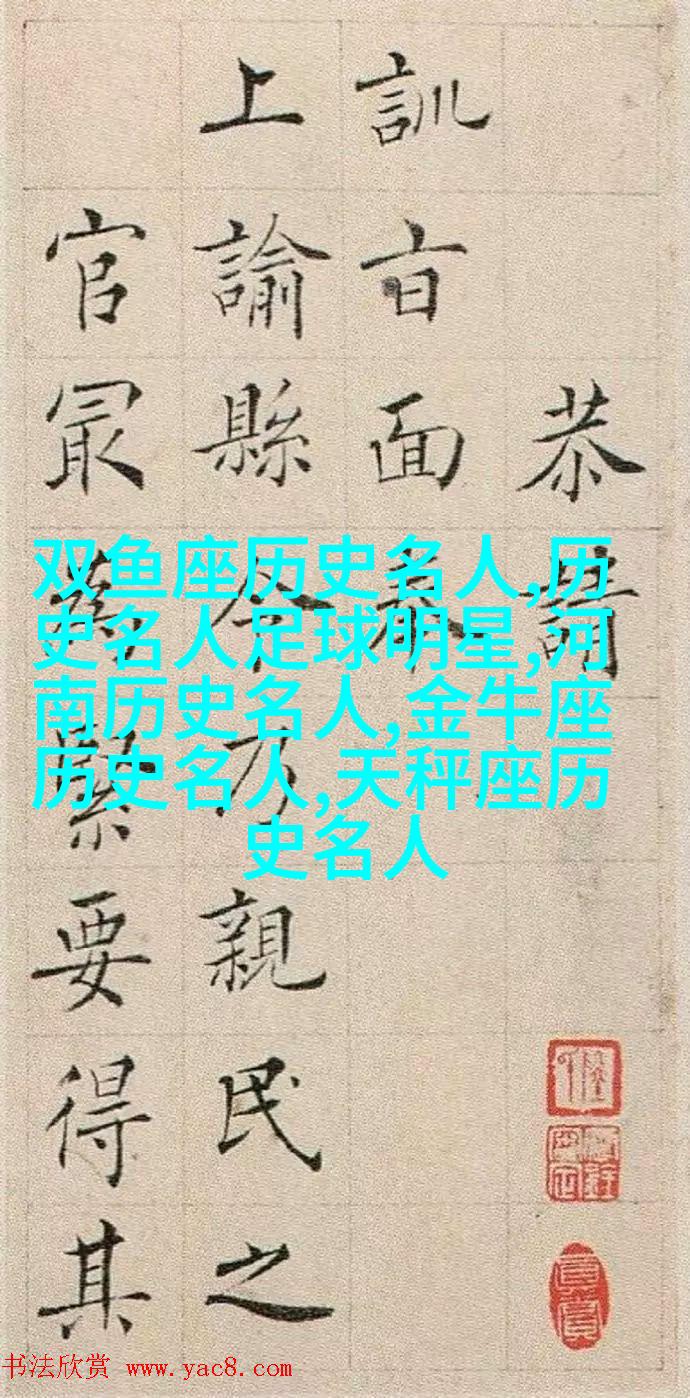 恭請
訓旨面奉
上諭縣令乃親民之
官最為緊要得其
双鱼座历史名人,历
史名人足球明星,河
南历史名人,金牛座
历史名人,天秤座历
史名人
书法欣赏 www.yac8.com